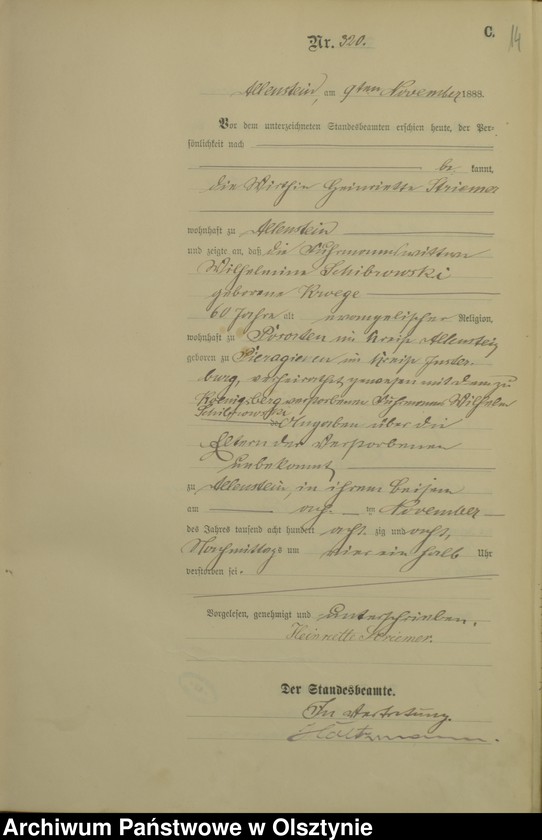 C.
14
Nr. 320.
Allenstein, am 9ten November 1888.
Vor dem unterzeichneten Standesbeamten erschien heute, der Per-
sönlichkeit nach
be kannt,
die Wirthin Heinriette Striemer
wohnhaft zu Allenstein
und zeigte an, daß die Fuhrmannswittwe
Wilhelmine Schibrowski
geborene Kroege
60 Jahre alt evangelischer Religion,
wohnhaft zu Pososten im Kreise Allenstein
geboren zu Pieragienen im Kreise Inster-
burg, verheirathet gewesen mit dem zu
Koenigsberg verstorbenen Fuhrmann Wilhelm
Schibrowski
Angaben über die
Eltern der Verstorbenen
unbekannt,
zu Allenstein, in ihrem Beisein
am acht ten November
des Jahres tausend acht hundert acht zig und acht,
Nachmittags um vier ein halb Uhr
verstorben sei.
Vorgelesen, genehmigt und unterschrieben.
Heinriette Striemer.
Der Standesbeamte.
In Vertretung.
Holtzmann.
Archiwum Państwowe w Olsztynie